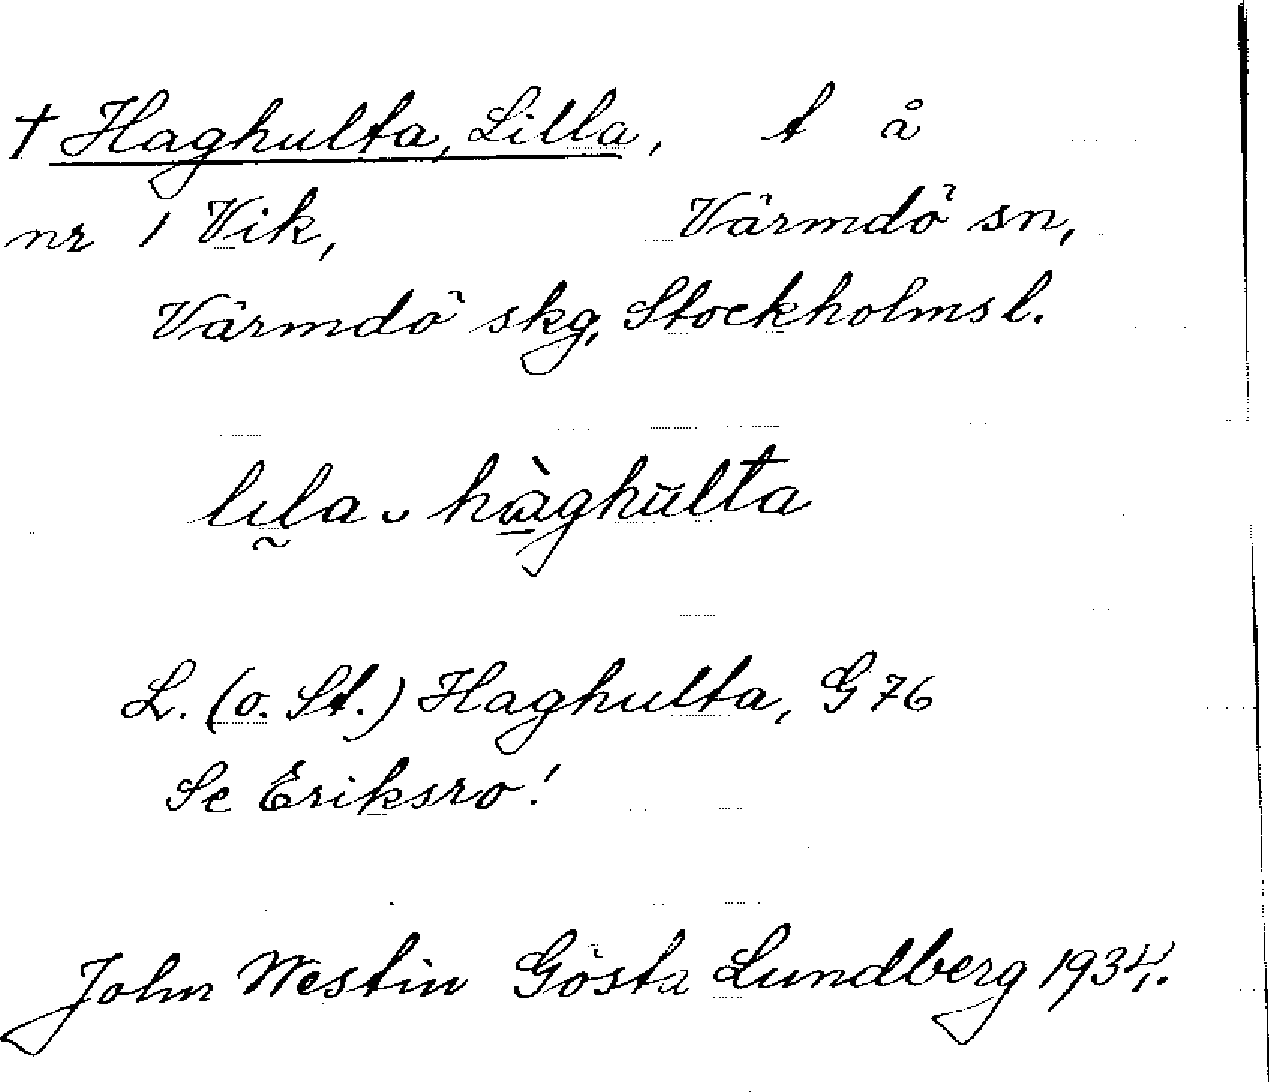 † Haghulta, Lilla, t å
nr 1 Vik, Värmdö sn,
Värmdö skg, Stockholms l.
lıla ᴗ hàghŭlta
L. (o. St.) Haghulta, G 76
Se Eriksro!
John Westin Gösta Lundberg 1934.